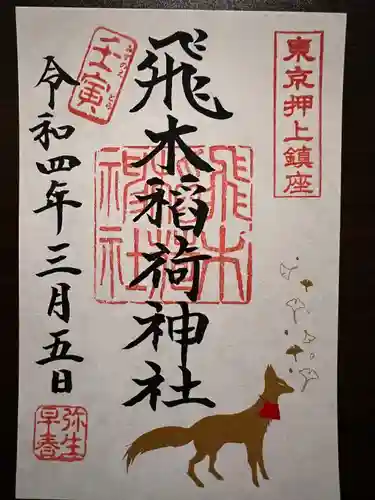 東京押上鎮座
飛木稲荷神社
飛木
稲荷
神社
壬寅
みずのえ とら
令和四年三月五日
弥生
早春